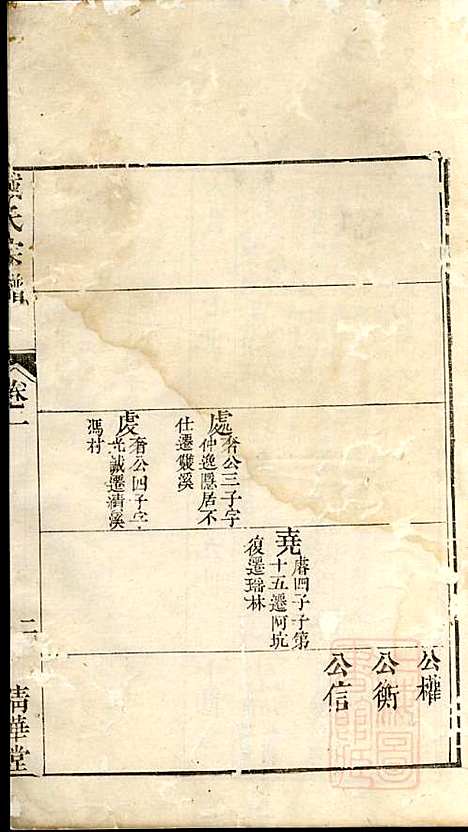 公權
公衡
公信
堯
四子子第
十五遷阿坑
復遷瑶林
處
奢公三子字
仲逸隱居不
仕遷雙溪
䖍
奢公四子字
光誠遷清溪
馮村
氏宗譜
卷一
二
清華堂